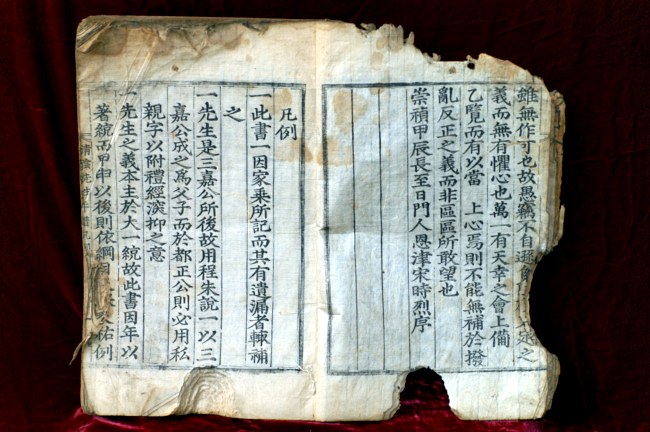 雖無作可也故愚竊不自
義而無有懼心也萬一有天幸之會上備
乙覽而有以當 上心焉則不能無補於撥
亂反正之義而非區區所敢望也
崇禎甲辰長至日門人恩津宋時烈序
凡例
一此書一因家乘所記而其有遺漏者輒補
之
一先生是三嘉公所後故用程朱說一以三
嘉公成之爲父子而於都正公則必用私
親字以附禮經深抑之意
一先生之義本主於大一統故此書因年以
著統而甲申以後則依綱目 例